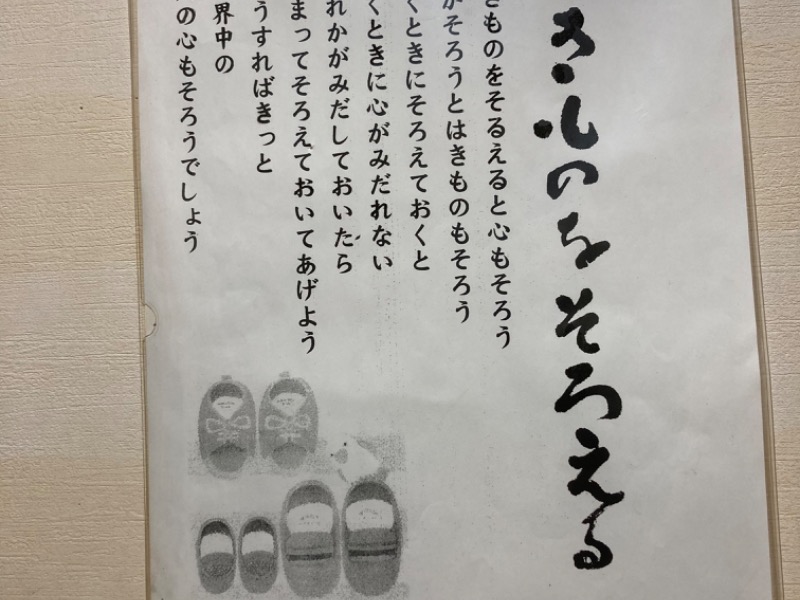 きものをそろえる
きものをそるえると心もそろう
がそろうとはきものもそろう
ときにそろえておくと
くときに心がみだれない
れかがみだしておいたら
まってそろえておいてあげよう
うすればきっと
界中の
の心もそろうでしょう